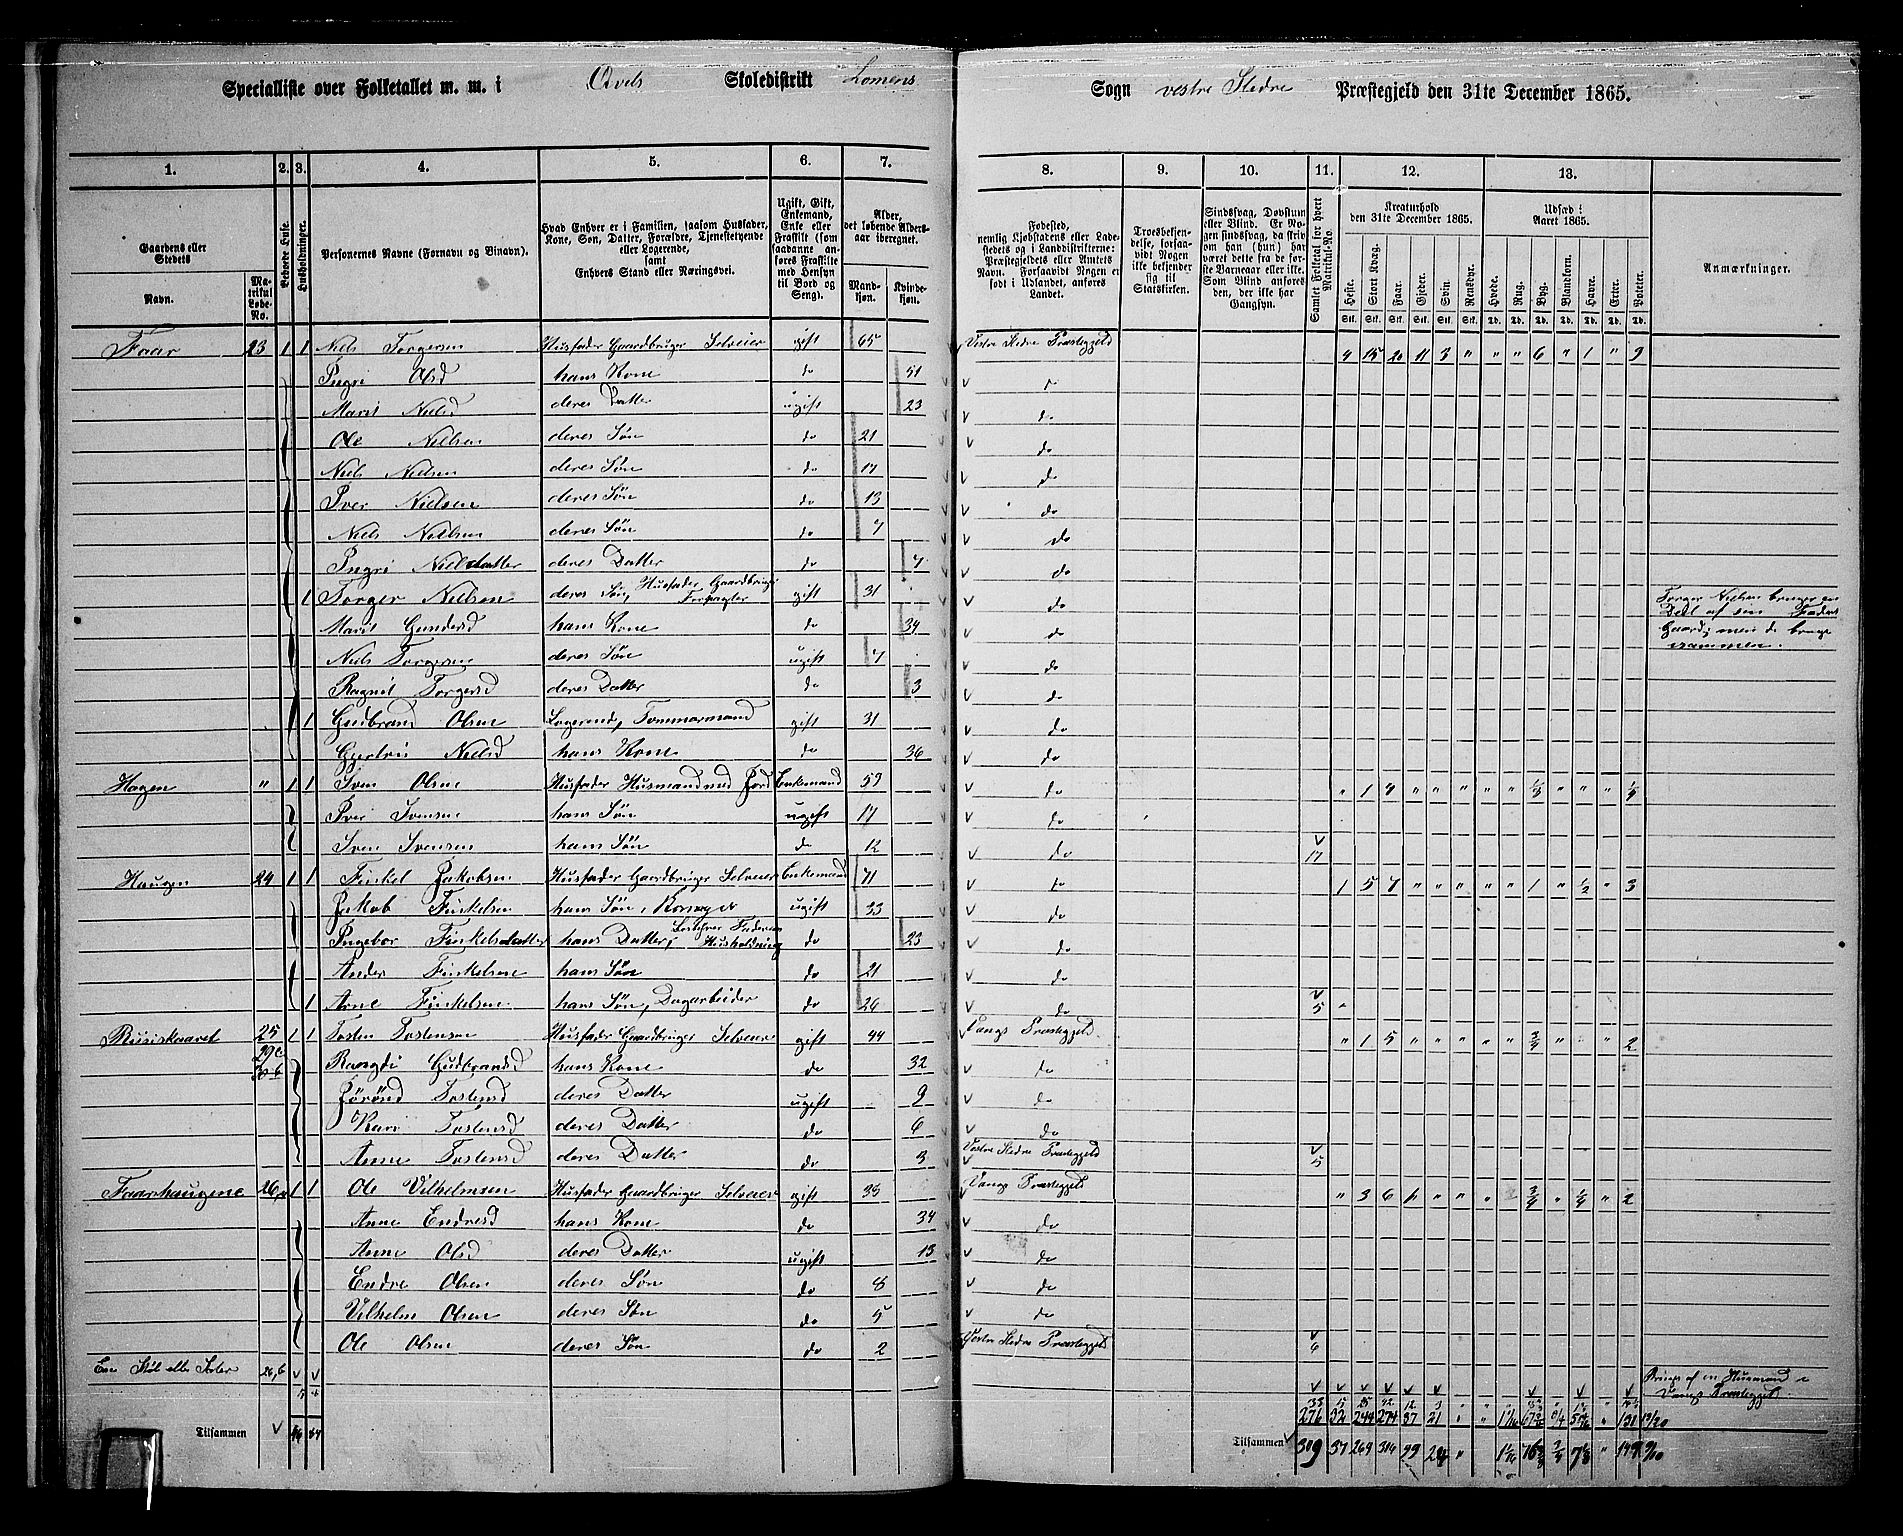 Specialliste over Folketallet m. m. i Qvels Skoledistrikt Lomens Sogn vestre Slidre Præstegjeld den 31te December 1865.
1. 2. 3. 4. 5. 6. 7. 8. 9. 10. 11. 12. 13.
Gaardens eller Stedets
Navn.
Matrikul Løbe-No.
Beboede Huse.
Husholdninger.
Personernes Navne (Fornavn og Binavn).
Hvad Enhver er i Familien, saasom Husfader, Kone, Søn, Datter, Forældre, Tjenestetyende eller Logerende, samt Enhvers Stand eller Næringsvei.
Ugift, Gift, Enkemand, Enke eller Fraskilt (som saadanne anføres Fraskilte med Hensyn til Bord og Seng).
Alder, det løbende Aldersaar iberegnet.
Mandkjøn. Kvindekjøn.
Fødested, nemlig Kjøbstadens eller Ladestedets og i Landdistrikterne: Præstegjeldets eller Amtets Navn. Forsaavidt Nogen er født i Udlandet, anføres Landet.
Troesbekjendelse, forsaavidt Nogen ikke bekjender sig til Statskirken.
Sindssvag, Døvstum eller Blind. Er Nogen sindssvag, da skriv om han (hun) har været dette fra de første Barneaar eller ikke. Som Blind anføres den, der ikke har Gangsyn.
Samlet Folketal for hvert Matrikul-No.
Kreaturhold den 31te December 1865.
Heste. Stort Kvæg. Faar. Gjeder. Svin. Rensdyr.
Udsæd i Aaret 1865.
Hvede. Rug. Byg. Blandkorn. Havre. Erter. Poteter.
Anmærkninger.
Faar 23 1 1 Niels Torgersen Husfader Gaardbruger Selveier gift 65 Vestre Slidre Præstegjeld 4 15 20 11 3 " " " 6 " 1 " 9
Ingri Olsd hans Kone do 51 do
Marit Nielsd deres Datter ugift 23 do
Ole Nielsen deres Søn do 21 do
Niels Nielsen deres Søn do 17 do
Iver Nielsen deres Søn do 13 do
Niels Nielsen deres Søn do 7 do
Ingri Nielsdatter deres Datter do 7 do
1 Torger Nielsen deres Søn, Husfader Gaardbruger Forpagter gift 31 do Torger Nielsen bruger en Deel af sin Faders Gaard; men de bruge sammen.
Marit Gundersd hans Kone do 34 do
Niels Torgersen deres Søn ugift 7 do
Ragnil Torgersd deres Datter do 3 do
1 Gudbrand Olsen Logerend, Tømmermand gift 31 do
Nielsd hans Kone do 36 do
Hagen " 1 1 Sven Olsen Husfader Husmand med Jord Enkemand 59 do " 1 4 " " " " " 1/3 " " " 1/4
Iver Svensen hans Søn ugift 17 do
Sven Svensen hans Søn do 12 do 17
Haugen 24 1 1 Finkel Jakobsen Husfader Gaardbruger Selveier Enkemand 71 do 1 5 7 " " " " " 1 " 1/2 " 3
Jakob Finkelsen hans Søn, ugift 33 do
Ingebor Finkelsdatter hans Datter, bestyrer Faderens Husholdning do 23 do
Ander Finkelsen hans Søn do 21 do
1 Arne Finkelsen hans Søn, Dagarbeider do 26 do 5
Rusiskaaret 25 1 1 Tosten Tostensen Husfader Gaardbruger Selveier gift 44 Vangs Præstegjeld " 1 5 " " " " " 3/4 " " 2
29c Rangdi Gudbrandsd hans Kone do 32 do
Jørønd Tostensd deres Datter ugift 9 do
Kari Tostensd deres Datter do 6 do
Anne Tostensd deres Datter do 3 Vestre Slidre Præstegjeld 5
Faarhaugene 26,a 1 1 Ole Vilhelmsen Husfader Gaardbruger Selveier gift 35 Vangs Præstegjeld " 3 6 " " " " 3/4 " 1/4 " 2
Anne Endresd hans Kone do 34 do
Anne Olsd deres Datter ugift 13 do
Endre Olsen deres Søn do 8 do
Vilhelm Olsen deres Søn do 5 do
Ole Olsen deres Søn do 2 Vestre Slidre Præstegjeld 6
En Støl eller Sæter 26,b Bruges af en Husmand i Vangs Præstegjeld
33
276 32 244 274 87 21
Tilsammen
Tilsammen 309 37 269 316 99 24